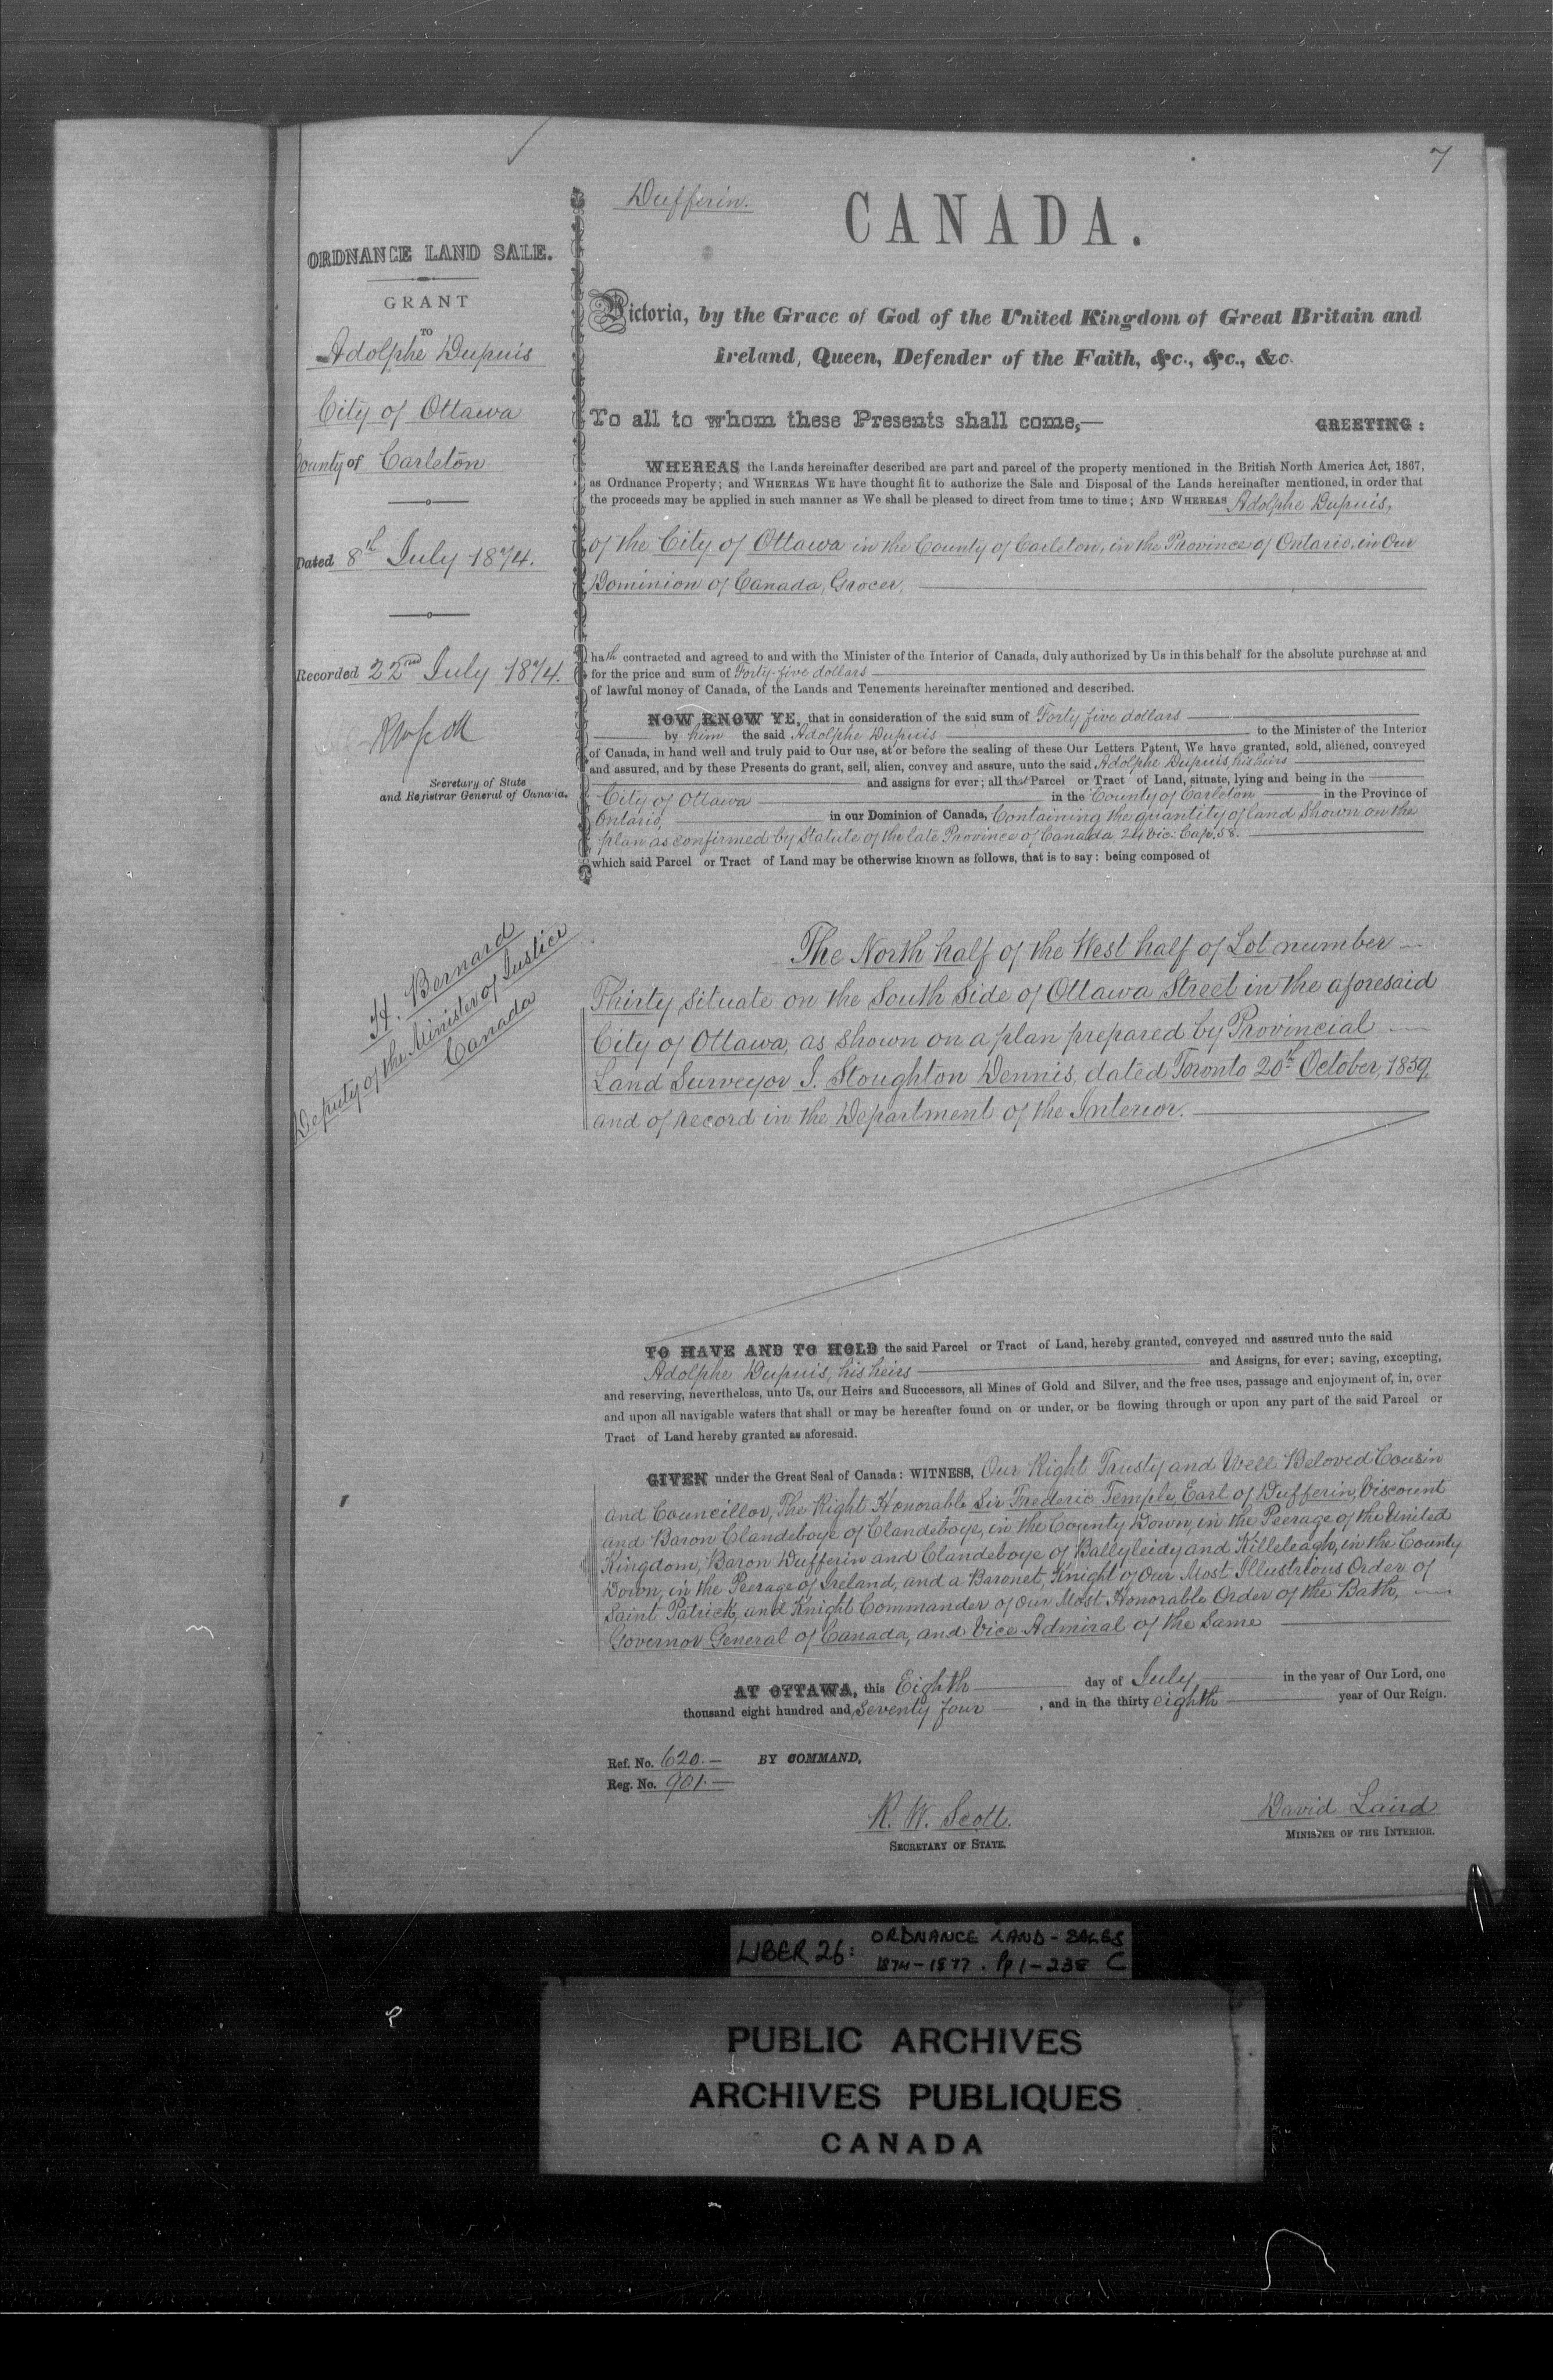 7
Dufferin.
CANADA.
ORDNANCE LAND SALE.
GRANT
TO
Adolphe Dupuis
City of Ottawa
County of Carleton
Dated 8th July 1874.
Recorded 22nd July 1874.
RWScott
Secretary of State
and Registrar General of Canada.
H. Bernard
Deputy of the Minister of Justice
Canada
Victoria, by the Grace of God of the United Kingdom of Great Britain and
Ireland, Queen, Defender of the Faith, &c., &c., &c.
To all to whom these Presents shall come,— GREETING:
WHEREAS the Lands hereinafter described are part and parcel of the property mentioned in the British North America Act, 1867,
as Ordnance Property; and WHEREAS WE have thought fit to authorize the Sale and Disposal of the Lands hereinafter mentioned, in order that
the proceeds may be applied in such manner as We shall be pleased to direct from time to time; AND WHEREAS Adolphe Dupuis,
of the City of Ottawa in the County of Carleton, in the Province of Ontario, in Our
Dominion of Canada, Grocer,
hath contracted and agreed to and with the Minister of the Interior of Canada, duly authorized by Us in this behalf for the absolute purchase at and
for the price and sum of Forty-five dollars
of lawful money of Canada, of the Lands and Tenements hereinafter mentioned and described.
NOW KNOW YE, that in consideration of the said sum of Forty five dollars
by him the said Adolphe Dupuis to the Minister of the Interior
of Canada, in hand well and truly paid to Our use, at or before the sealing of these Our Letters Patent, We have granted, sold, aliened, conveyed
and assured, and by these Presents do grant, sell, alien, convey and assure, unto the said Adolphe Dupuis, his heirs
and assigns for ever; all that Parcel or Tract of Land, situate, lying and being in the
City of Ottawa in the County of Carleton in the Province of
Ontario, in our Dominion of Canada, Containing the quantity of land Shown on the
plan as confirmed by Statute of the late Province of Canada, 24 Vic: Cap. 58.
which said Parcel or Tract of Land may be otherwise known as follows, that is to say: being composed of
The North half of the West half of Lot number
Thirty situate on the South Side of Ottawa Street in the aforesaid
City of Ottawa, as shown on a plan prepared by Provincial
Land Surveyor J. Stoughton Dennis, dated Toronto 20th October, 1859
and of record in the Department of the Interior.
TO HAVE AND TO HOLD the said Parcel or Tract of Land, hereby granted, conveyed and assured unto the said
Adolphe Dupuis, his heirs and Assigns, for ever; saving, excepting,
and reserving, nevertheless, unto Us, our Heirs and Successors, all Mines of Gold and Silver, and the free uses, passage and enjoyment of, in, over
and upon all navigable waters that shall or may be hereafter found on or under, or be flowing through or upon any part of the said Parcel or
Tract of Land hereby granted as aforesaid.
GIVEN under the Great Seal of Canada: WITNESS, Our Right Trusty and Well Beloved Cousin
and Councillor, The Right Honorable Sir Frederic Temple, Earl of Dufferin, Viscount
and Baron Clandeboye of Clandeboye, in the County Down, in the Peerage of the United
Kingdom, Baron Dufferin and Clandeboye of Ballyleidy and Killeleagh, in the County
Down, in the Peerage of Ireland, and a Baronet, Knight of Our Most Illustrious Order of
Saint Patrick, and Knight Commander of Our Most Honorable Order of the Bath,
Governor General of Canada, and Vice Admiral of the Same
AT OTTAWA, this Eighth day of July in the year of Our Lord, one
thousand eight hundred and Seventy four, and in the thirty eighth year of Our Reign.
Ref. No. 620.— BY COMMAND,
Reg. No. 901.—
R. W. Scott.
SECRETARY OF STATE.
David Laird
MINISTER OF THE INTERIOR.
LIBER 26: ORDNANCE LAND-SALES
1874-1877. Pp 1-238 C
PUBLIC ARCHIVES
ARCHIVES PUBLIQUES
CANADA